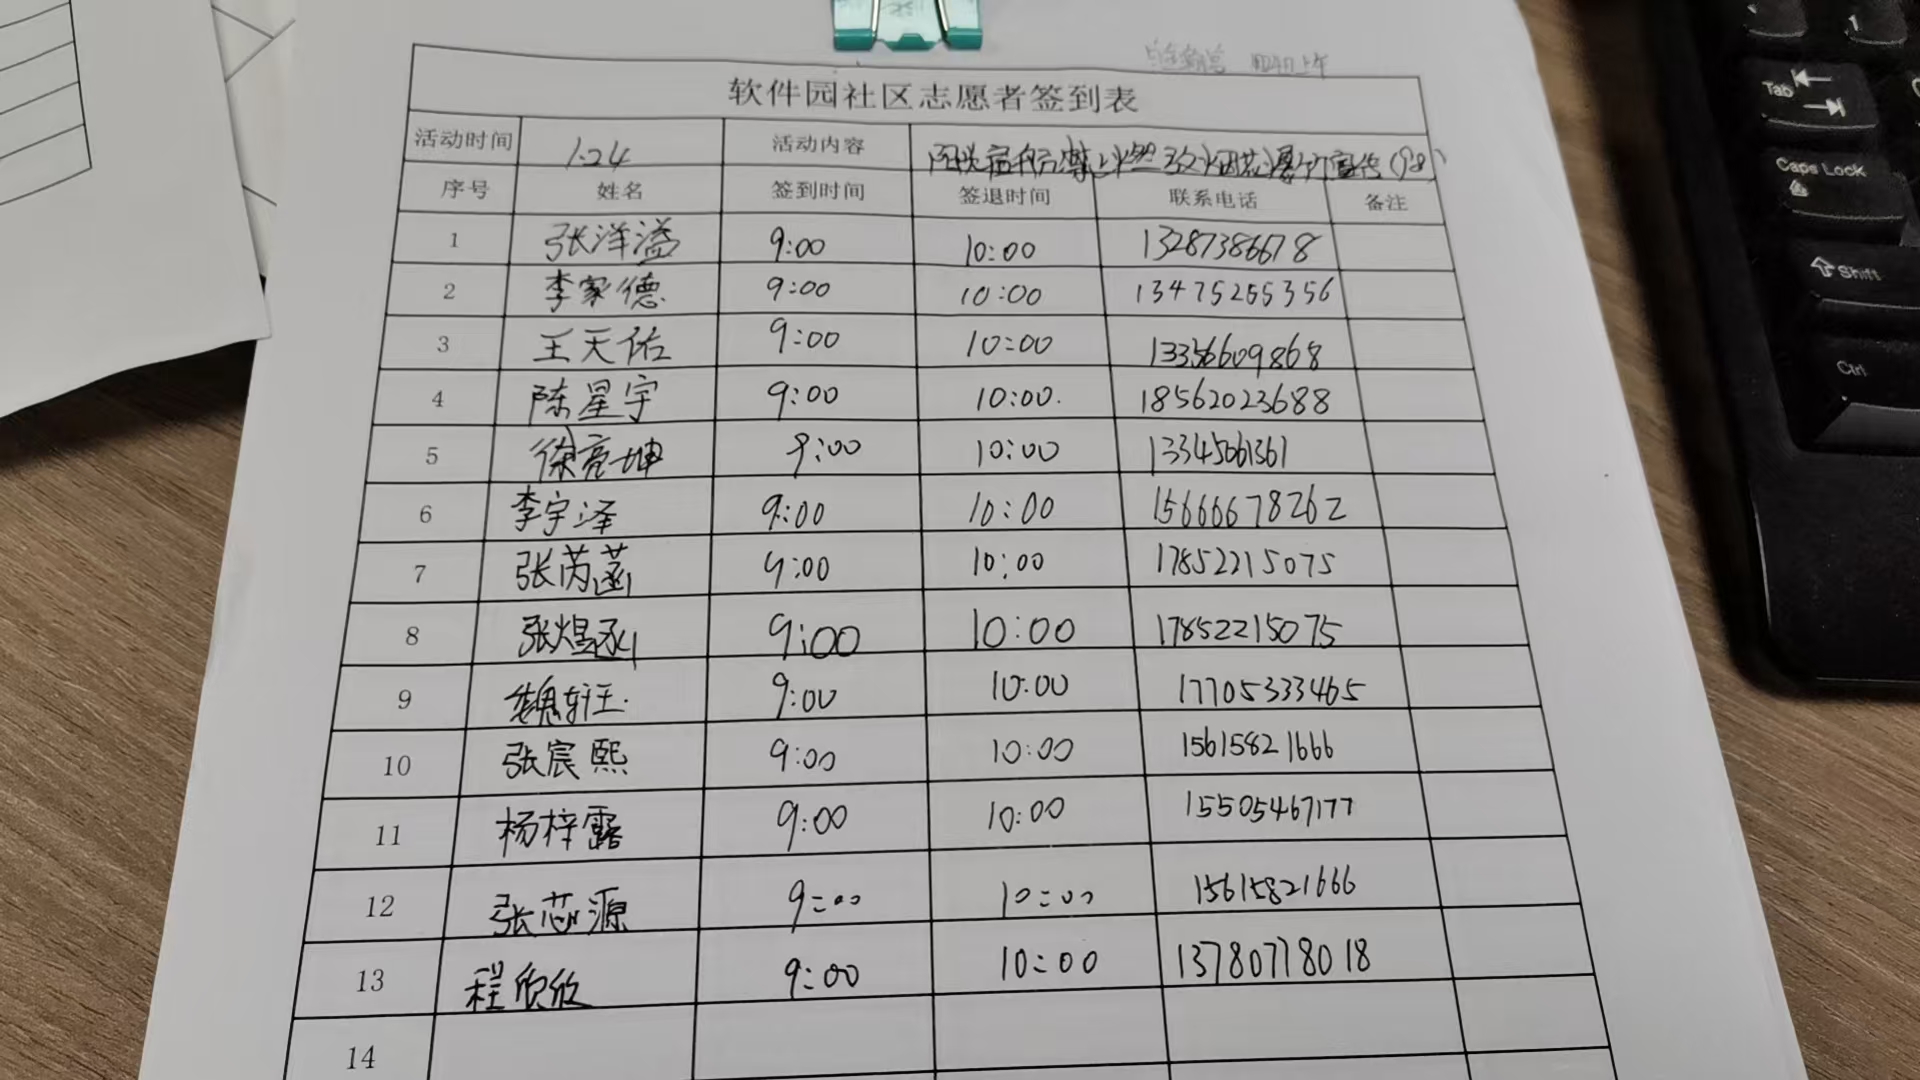 软件园社区志愿者签到表
活动时间 1.24 活动内容 禁止燃放烟花爆竹宣传
序号 姓名 签到时间 签退时间 联系电话 备注
1 张洋溢 9:00 10:00 13287386678
2 李家德 9:00 10:00 13475255356
3 王天佑 9:00 10:00 13356609868
4 陈星宇 9:00 10:00. 18562023688
5 徐亮坤 9:00 10:00 13345061361
6 李宇泽 9:00 10:00 15666678262
7 张芮菡 9:00 10:00 17852215075
8 张煜 9:00 10:00 17852215075
9 魏 9:00 10:00 17705333465
10 张宸熙 9:00 10:00 15615821666
11 杨梓露 9:00 10:00 15505467177
12 张芯源 9:00 10:00 15615821666
13 程欣欣 9:00 10:00 13780778018
14
Tab
Caps Lock
Shift
Ctrl